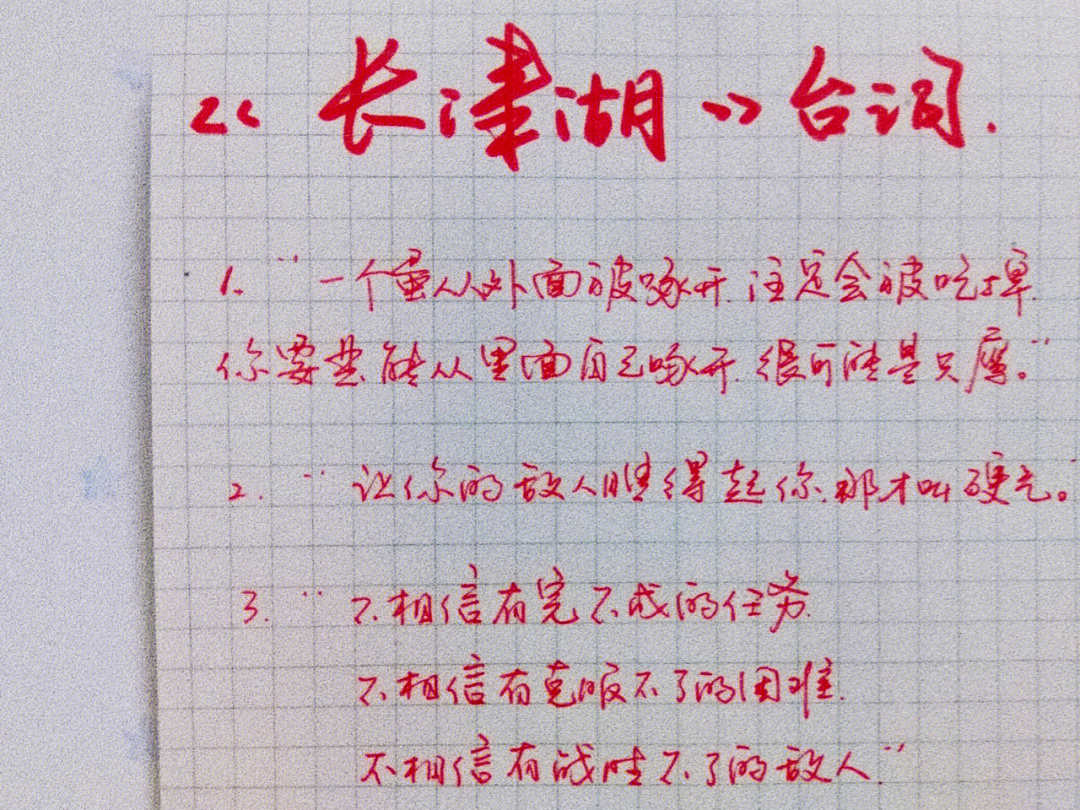 《长津湖》台词.
1. "一个蛋从外面被啄开.注定会被吃掉.
你要是能从里面自己啄开.很可能是只鹰。"
2. "让你的敌人瞧得起你.那才叫硬气。
3. "不相信有完不成的任务.
不相信有克服不了的困难.
不相信有战胜不了的敌人"